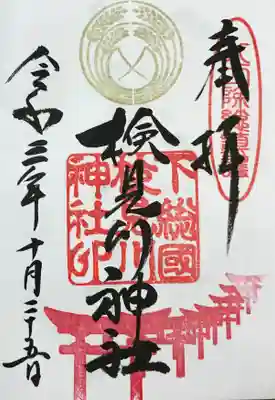 奉拝
検見川神社
下総國
検見川
神社印
令和二年十月二十五日